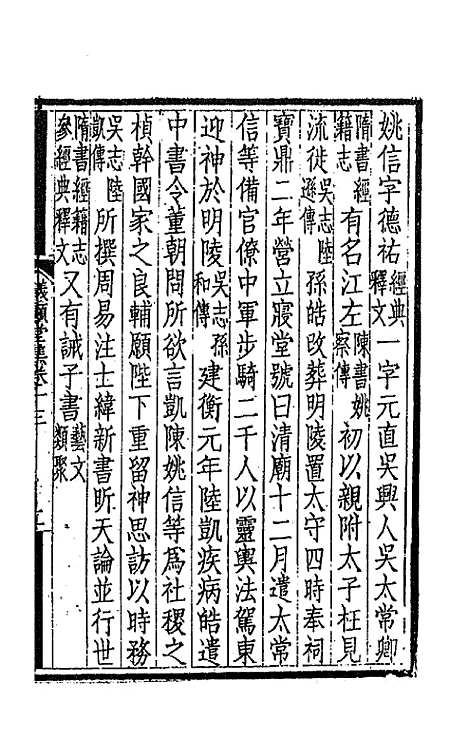 姚信字德祐經典釋文一字元直吳興人吳太常卿
隋書經籍志有名江左陳書姚察傳初以親附太子枉見
流徙吳志陸遜傳孫皓改葬明陵置太守四時奉祠
寶鼎二年營立寢堂號曰清廟十二月遣太常
信等備官僚中軍步騎二千人以靈輿法駕東
迎神於明陵吳志孫和傳建衡元年陸凱疾病皓遣
中書令董朝問所欲言凱陳姚信等爲社稷之
楨幹國家之良輔願陛下重留神思訪以時務
吳志陸凱傳所撰周易注士緯新書昕天論並行世
隋書經籍志參經典釋文又有誡子書藝文類聚
儀顧堂集卷十三